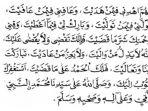 اللهم اهدني فيمن هديت، وعافني فيمن عافيت،
وتولني فيمن توليت، وبارك لي فيما أعطيت، وقني
شر ما قضيت، فإنك تقضي ولا يقضى عليك،
وإنه لا يذل من واليت، ولا يعز من عاديت، تباركت
ربنا وتعاليت، فلك الحمد على ما قضيت، أستغفرك
وأتوب إليك، وصلى الله على سيدنا محمد النبي
الأمي وعلى آله وصحبه وسلم.